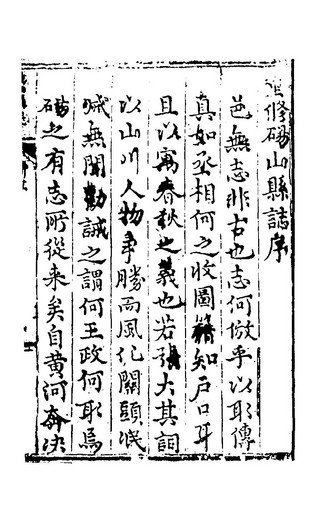 修碭山縣誌序
邑無志非古也志何倣乎以耶傳
真如丞相何之收圖籍知戶口耳
且以寓春秋之義也若張大其詞
以山川人物爭勝而風化關頭泯
滅無聞勸誡之謂何王政何耶焉
碭之有志所從来矣自黄河奔决